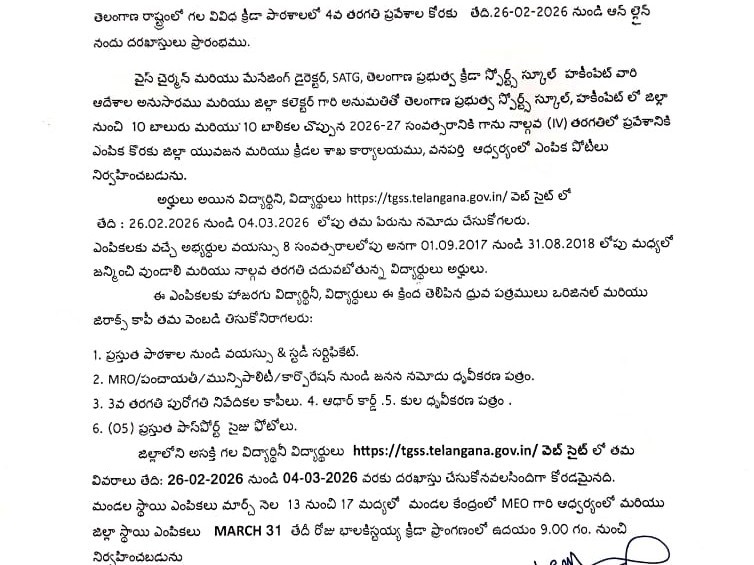 తెలంగాణ రాష్ట్రంలో గల వివిధ క్రీడా పాఠశాలలో 4వ తరగతి ప్రవేశాల కోరకు తేది.26-02-2026 నుండి ఆన్ లైన్
నందు దరఖాస్తులు ప్రారంభము.
వైస్ చైర్మన్ మరియు మేనేజింగ్ డైరెక్టర్, SATG, తెలంగాణ ప్రభుత్వ క్రీడా స్పోర్ట్స్ స్కూల్ హకీంపేట్ వారి
ఆదేశాల అనుసారము మరియు జిల్లా కలెక్టర్ గారి అనుమతితో తెలంగాణ ప్రభుత్వ స్పోర్ట్స్ స్కూల్, హకీంపేట్ లో జిల్లా
నుంచి 10 బాలురు మరియు 10 బాలికల చొప్పున 2026-27 సంవత్సరానికి గాను నాల్గవ (IV) తరగతిలో ప్రవేశానికి
ఎంపిక కొరకు జిల్లా యువజన మరియు క్రీడల శాఖ కార్యాలయము, వనపర్తి ఆధ్వర్యంలో ఎంపిక పోటీలు
నిర్వహించబడును.
అర్హులు అయిన విద్యార్థిని, విద్యార్థులు https://tgss.telangana.gov.in/ వెబ్ సైట్ లో
తేది : 26.02.2026 నుండి 04.03.2026 లోపు తమ పేరును నమోదు చేసుకోగలరు.
ఎంపికలకు వచ్చే అభ్యర్థుల వయస్సు 8 సంవత్సరాలలోపు అనగా 01.09.2017 నుండి 31.08.2018 లోపు మధ్యలో
జన్మించి వుండాలి మరియు నాల్గవ తరగతి చదువబోతున్న విద్యార్థులు అర్హులు.
ఈ ఎంపికలకు హాజరగు విద్యార్థినీ, విద్యార్థులు ఈ క్రింద తెలిపిన ధ్రువ పత్రములు ఒరిజినల్ మరియు
జిరాక్స్ కాపీ తమ వెంబడి తీసుకోనిరాగలరు:
1. ప్రస్తుత పాఠశాల నుండి వయస్సు & స్టడీ సర్టిఫికేట్.
2. MRO/పంచాయతీ/మున్సిపాలిటీ/కార్పోరేషన్ నుండి జనన నమోదు ధృవీకరణ పత్రం.
3. 3వ తరగతి పురోగతి నివేదికల కాపీలు. 4. ఆధార్ కార్డ్ .5. కుల ధృవీకరణ పత్రం .
6. (05) ప్రస్తుత పాస్‌పోర్ట్ సైజు ఫోటోలు.
జిల్లాలోని అసక్తి గల విద్యార్థినీ విద్యార్థులు https://tgss.telangana.gov.in/ వెబ్ సైట్ లో తమ
వివరాలు తేది: 26-02-2026 నుండి 04-03-2026 వరకు దరఖాస్తు చేసుకోనవలసిందిగా కోరడమైనది.
మండల స్థాయి ఎంపికలు మార్చ్ నెల 13 నుంచి 17 మద్యలో మండల కేంద్రంలో MEO గారి ఆధ్వర్యంలో మరియు
జిల్లా స్థాయి ఎంపికలు MARCH 31 తేదీ రోజు భాలకిస్టయ్య క్రీడా ప్రాంగణంలో ఉదయం 9.00 గం. నుంచి
నిర్వహించబడును